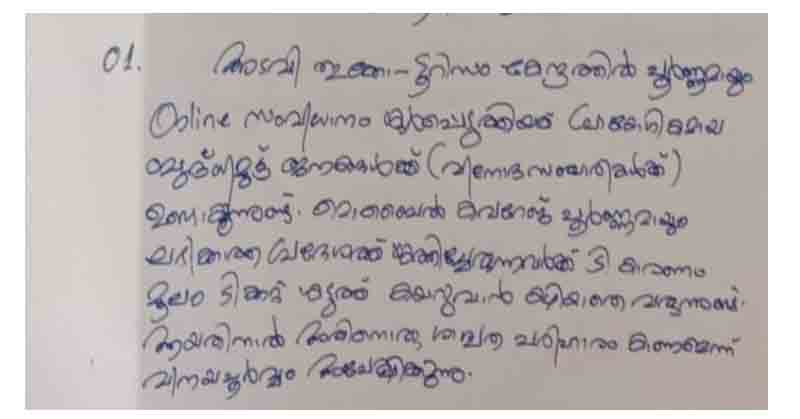 01. അടവി ഇക്കോ-ടൂറിസം കേന്ദ്രത്തിൽ പൂർണ്ണമായും
Online സംവിധാനം ഏർപ്പെടുത്തിയത് പ്രായോഗികമായ
ബുദ്ധിമുട്ട് ജനങ്ങൾക്ക് (വിനോദസഞ്ചാരികൾക്ക്)
ഉണ്ടാക്കുന്നുണ്ട്. മൊബൈൽ കവറേജ് പൂർണ്ണമായും
ലഭിക്കാത്ത പ്രദേശത്ത് എത്തിച്ചേരുന്നവർക്ക് ടി കാരണം
മൂലം ടിക്കറ്റ് എടുത്ത് കയറുവാൻ കഴിയാതെ വരുന്നുണ്ട്.
ആയതിനാൽ അതിനൊരു ശാശ്വത പരിഹാരം കാണമെന്ന്
വിനയപൂർവ്വം അപേക്ഷിക്കുന്നു.